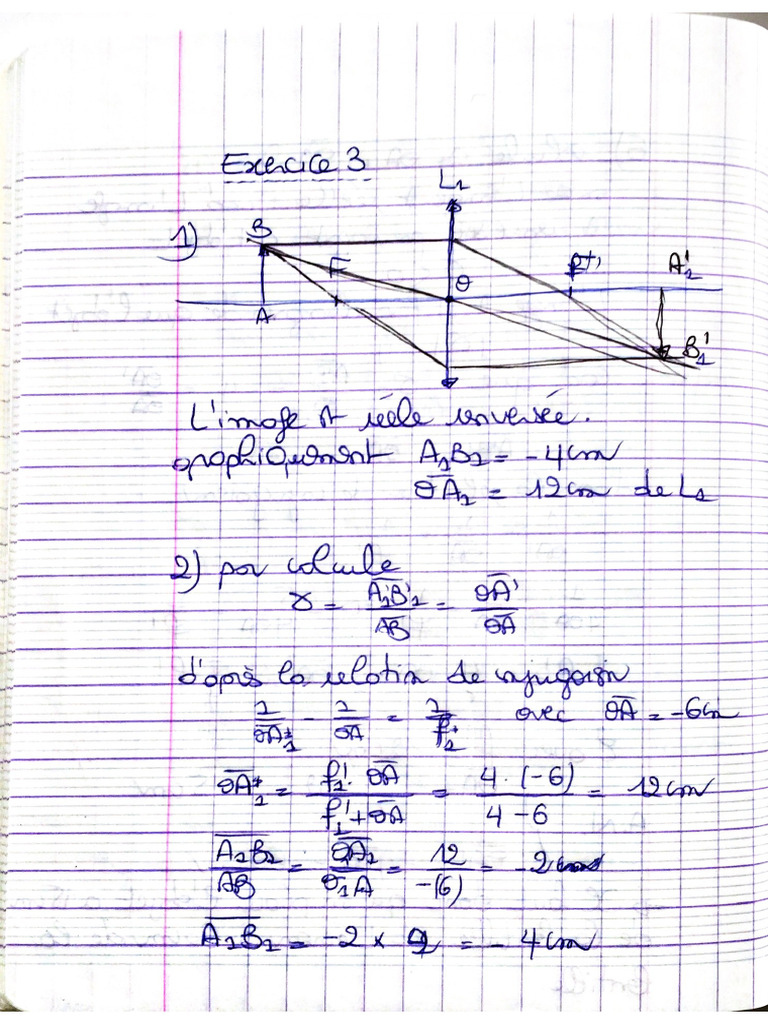 Exercice 3
L₁
1) B F O F' A'₁
A B'₁
L'image et réele renversée.
graphiquement A₁B₁ = -4cm
OA₁ = 12cm de L₁
2) par calcule
γ = A'₁B'₁/AB = OA'/OA
d'après la relation de conjugaison
1/OA'₁ - 1/OA = 1/f'₁ avec OA = -6cm
OA'₁ = f'₁ · OA / f'₁ + OA = 4 · (-6) / 4 - 6 = 12cm
A₁B₁/AB = OA₁/O₁A = 12/-(6) = -2
A₁B₁ = -2 × 2 = - 4cm